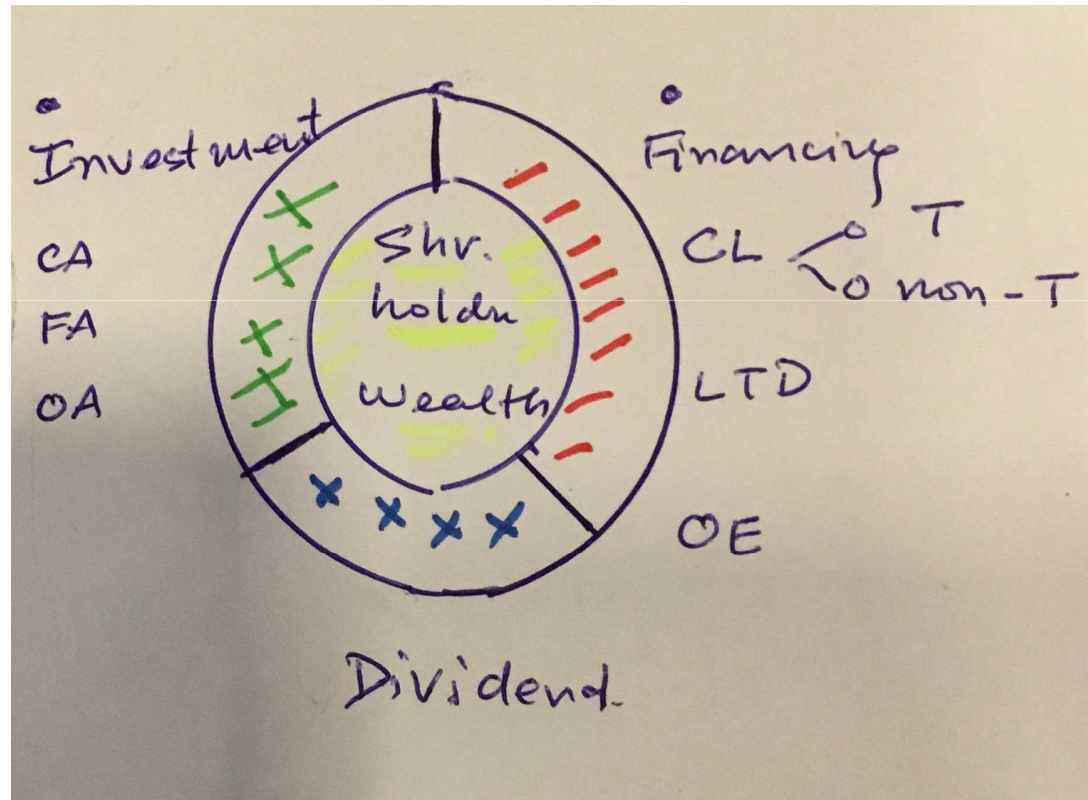 Investment
CA
FA
OA
Shr.
holdn
Wealth
Financing
CL T
non-T
LTD
OE
Dividend.